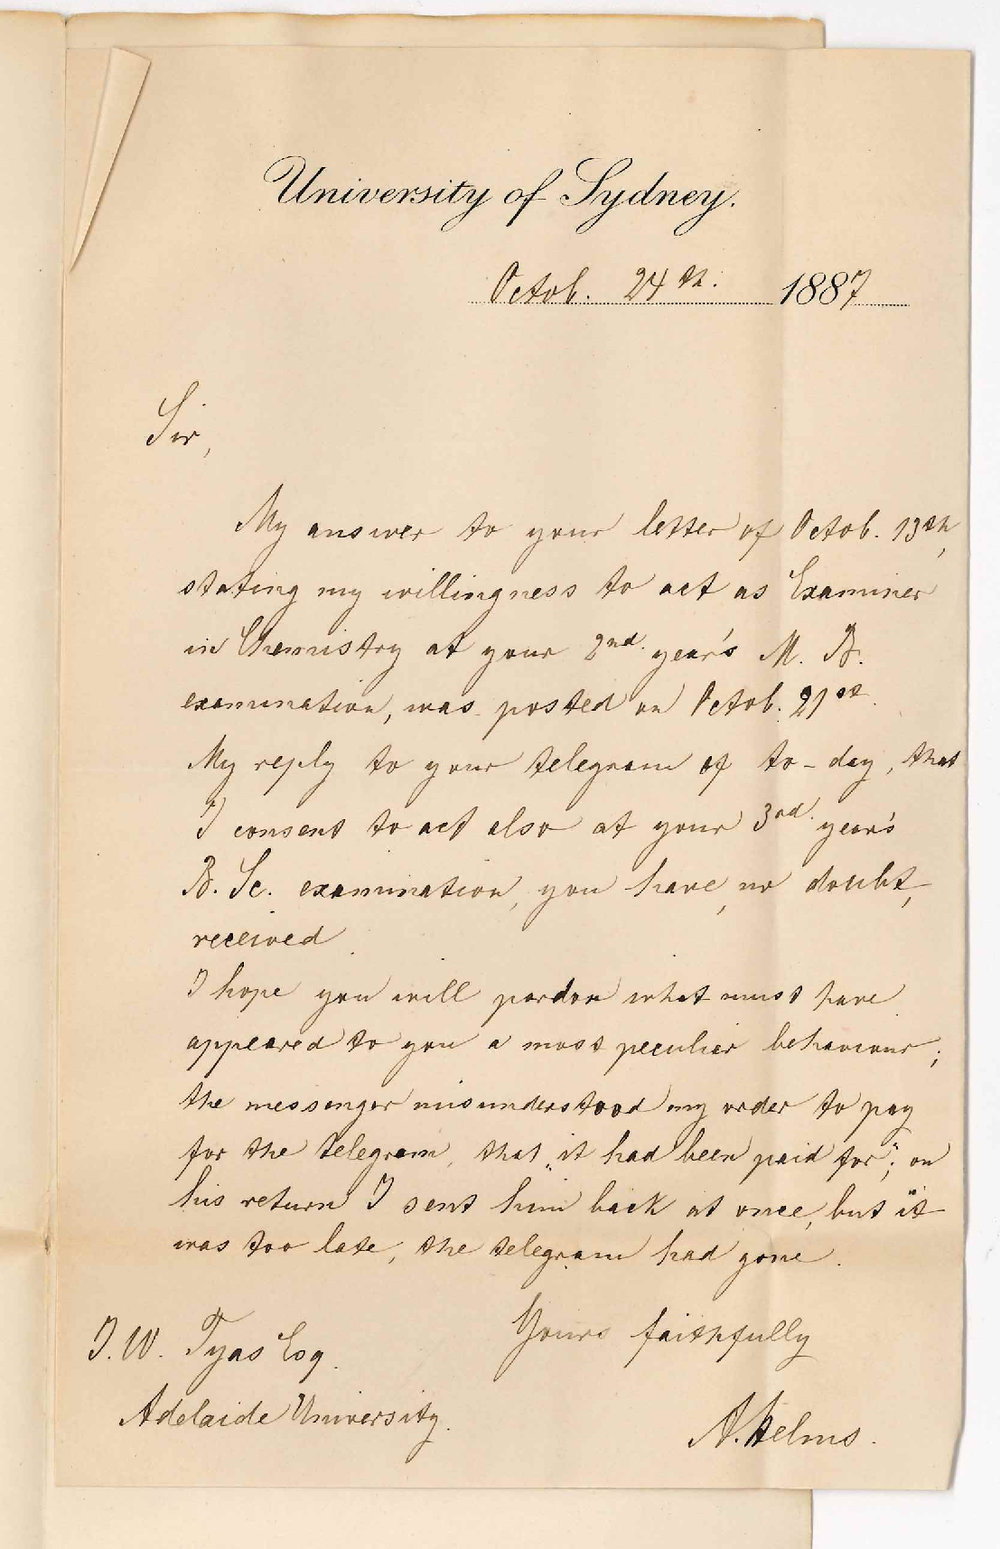 University of Sydney.
Octob. 24th. 1887
Sir,
My answer to your letter of Octob. 13th,
stating my willingness to act as Examiner
in Chemistry at your 2nd. year's M. B.
examination, was posted on Octob. 21st.
My reply to your telegram of to-day, that
I consent to act also at your 3rd. year's
B. Sc. examination, you have, no doubt,
received.
I hope you will pardon what must have
appeared to you a most peculiar behaviour;
the messenger misunderstood my order to pay
for the telegram, that „it had been paid for"; on
his return I sent him back at once, but it
was too late, the telegram had gone.
Yours faithfully
J. W. Tyas Esq.
Adelaide University.
A. Helms.